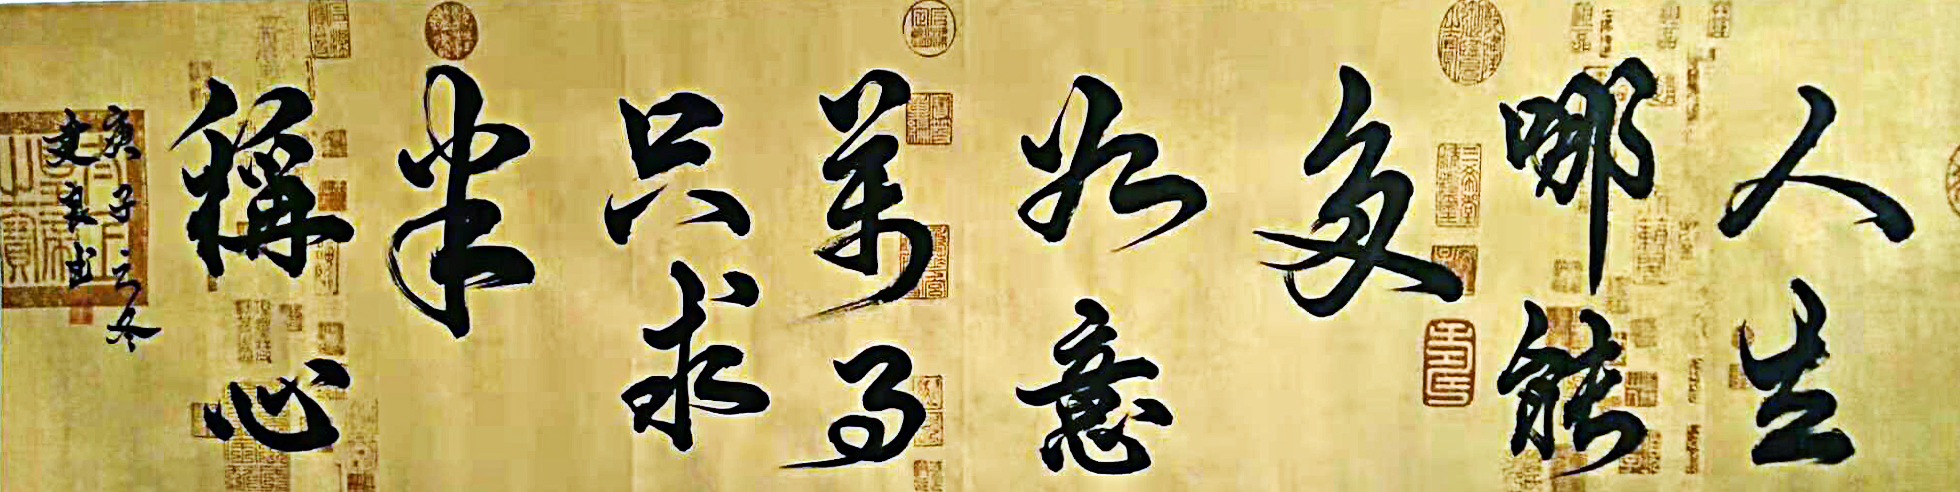 人生
哪能
多
如意
萬事
只求
半
稱心
庚子之冬
良书